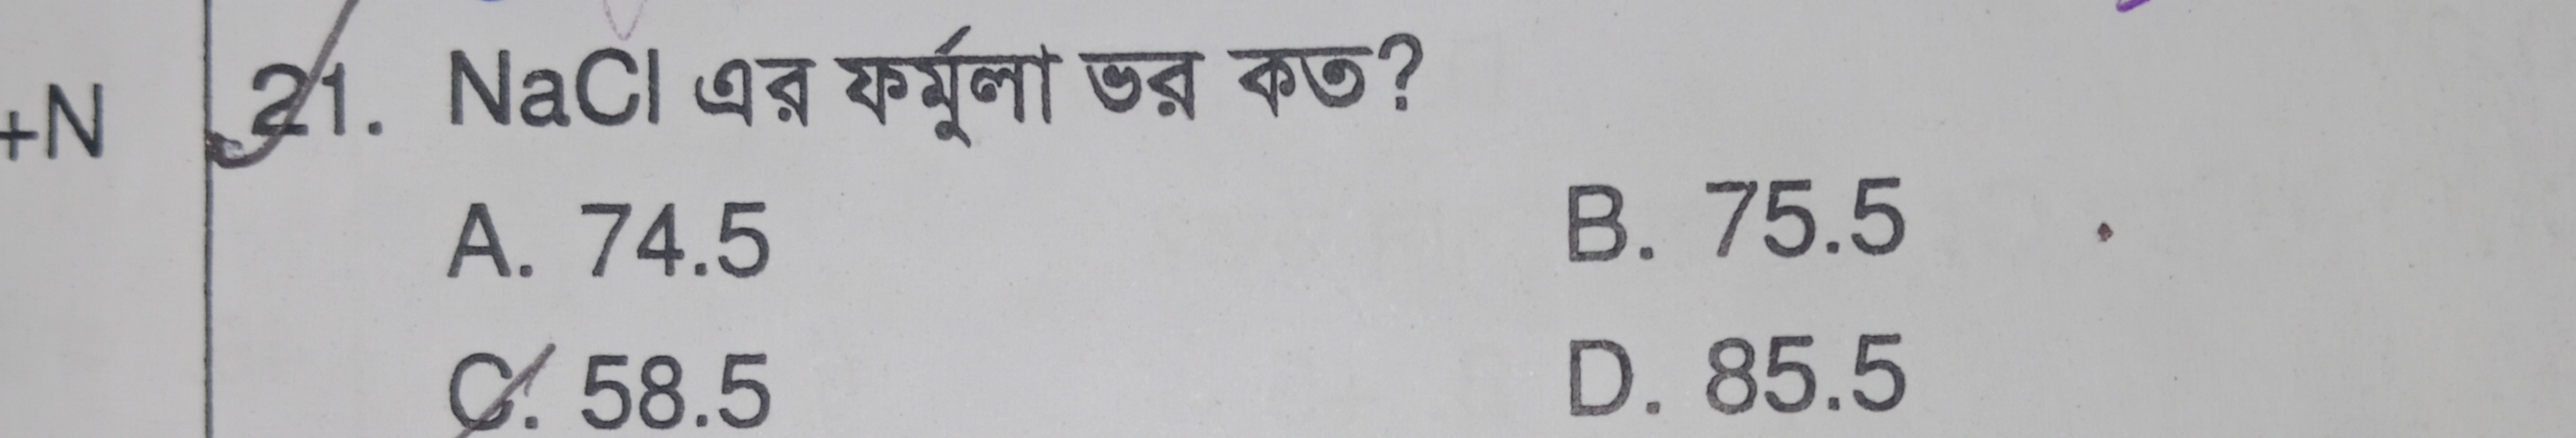 +N
21. NaCl এর ফর্মুলা ভর কত?
A. 74.5 B. 75.5
C. 58.5 D. 85.5